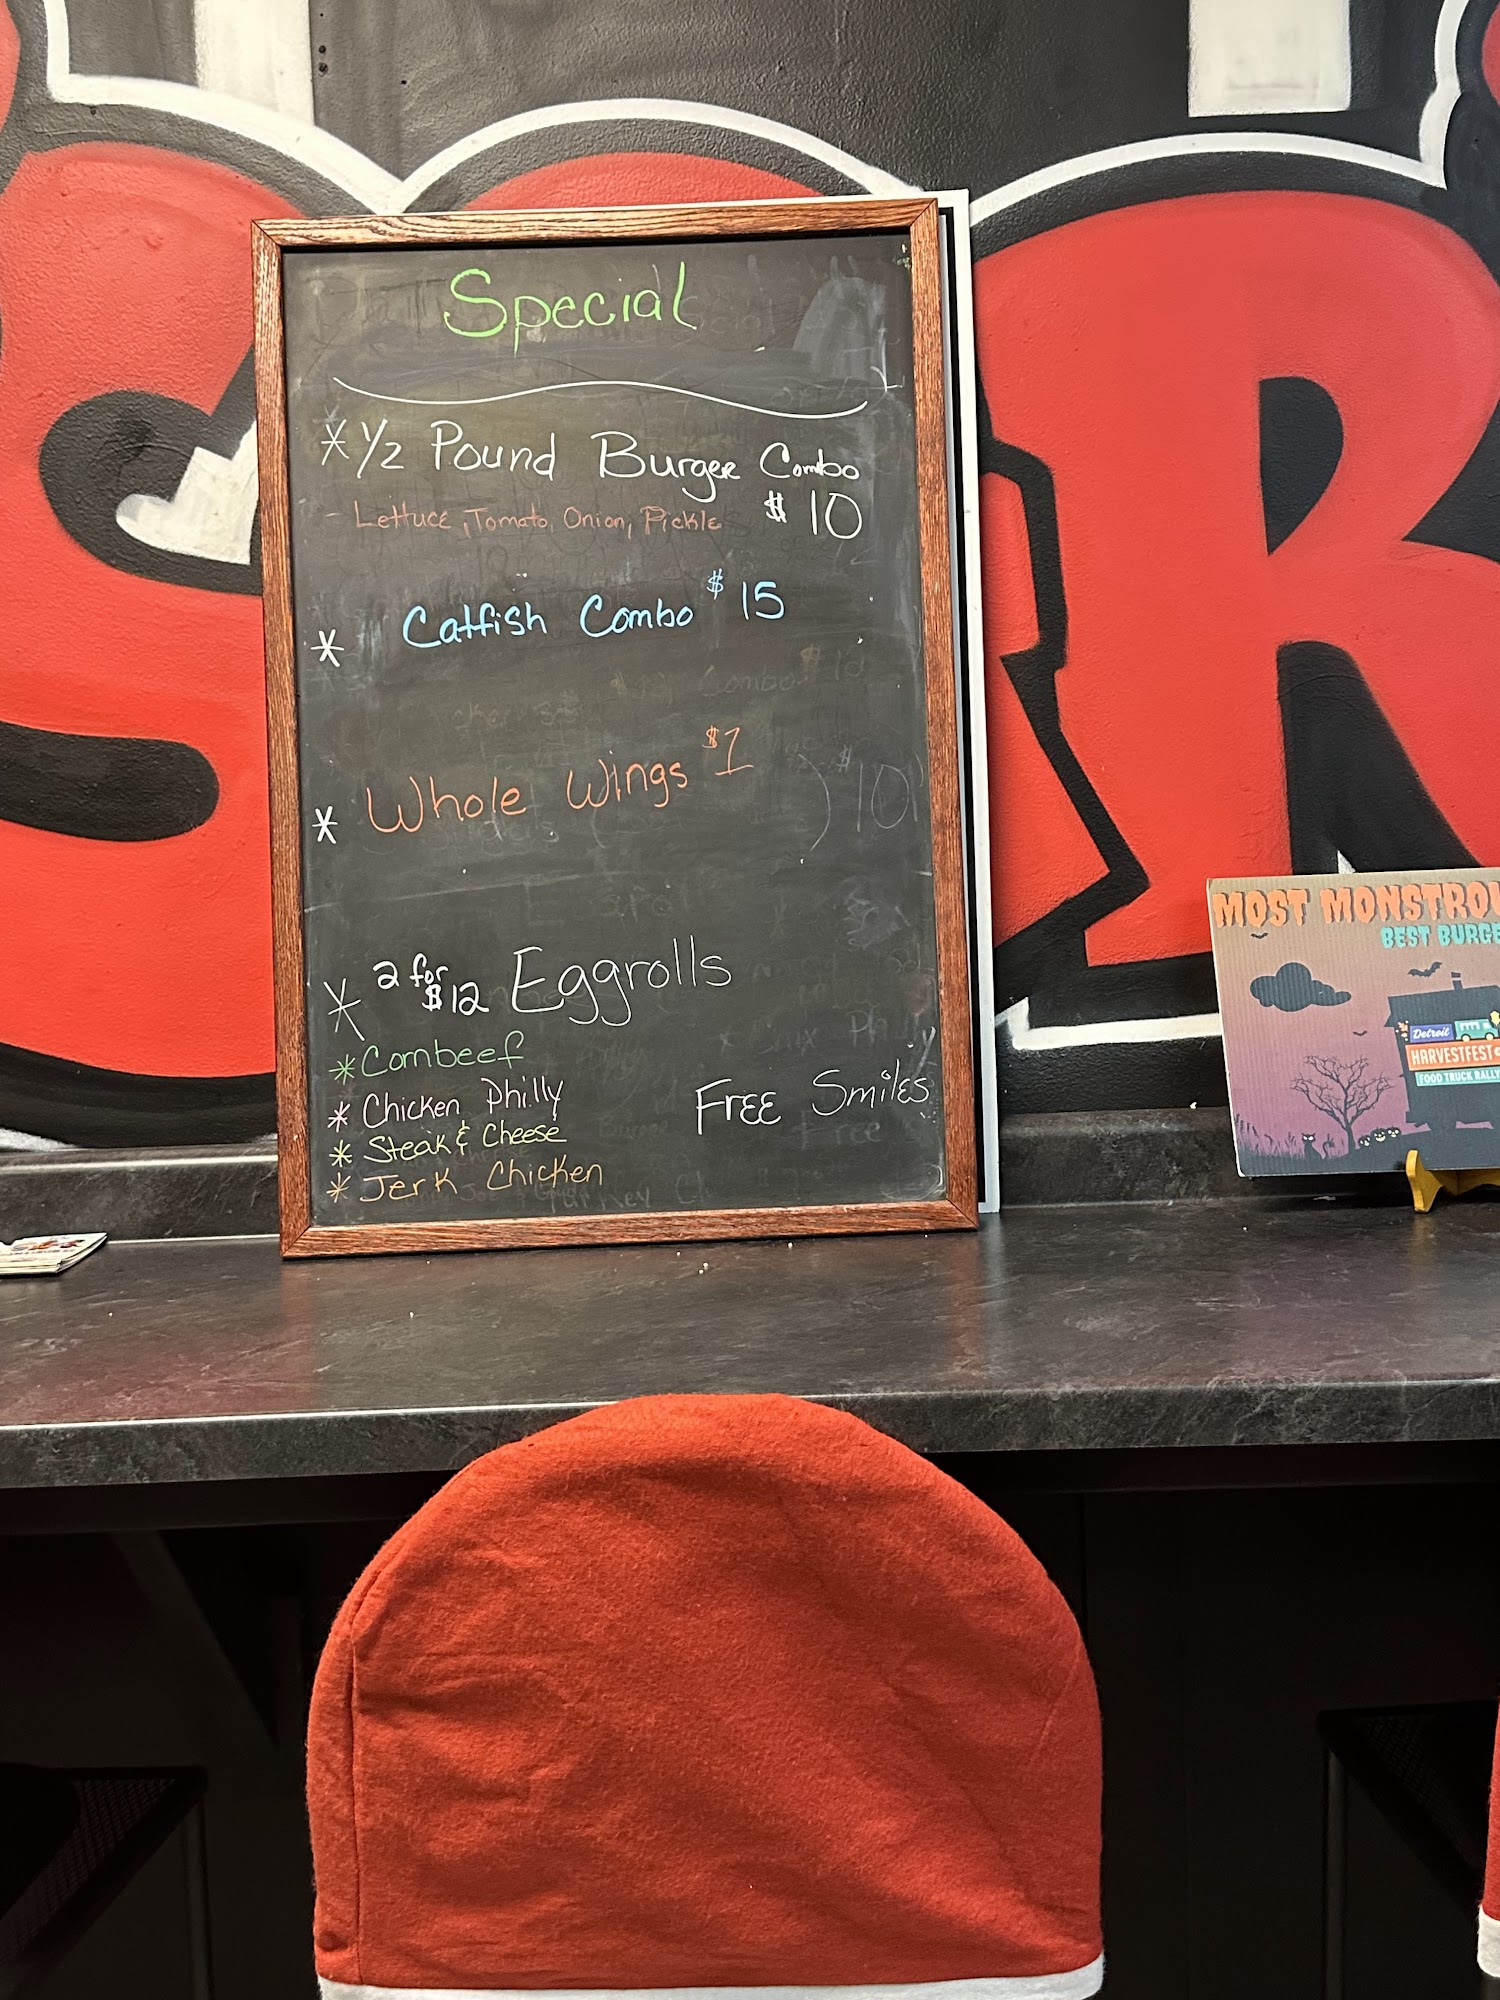 Special
* 1/2 Pound Burger Combo
- Lettuce, Tomato, Onion, Pickle $10
* Catfish Combo $15
* Whole Wings $1
* 2 for $12 Eggrolls
* Cornbeef
* Chicken Philly
* Steak & Cheese
* Jerk Chicken
Free Smiles
MOST MONSTROU
BEST BURGE
Detroit
HARVESTFEST
FOOD TRUCK RALLY